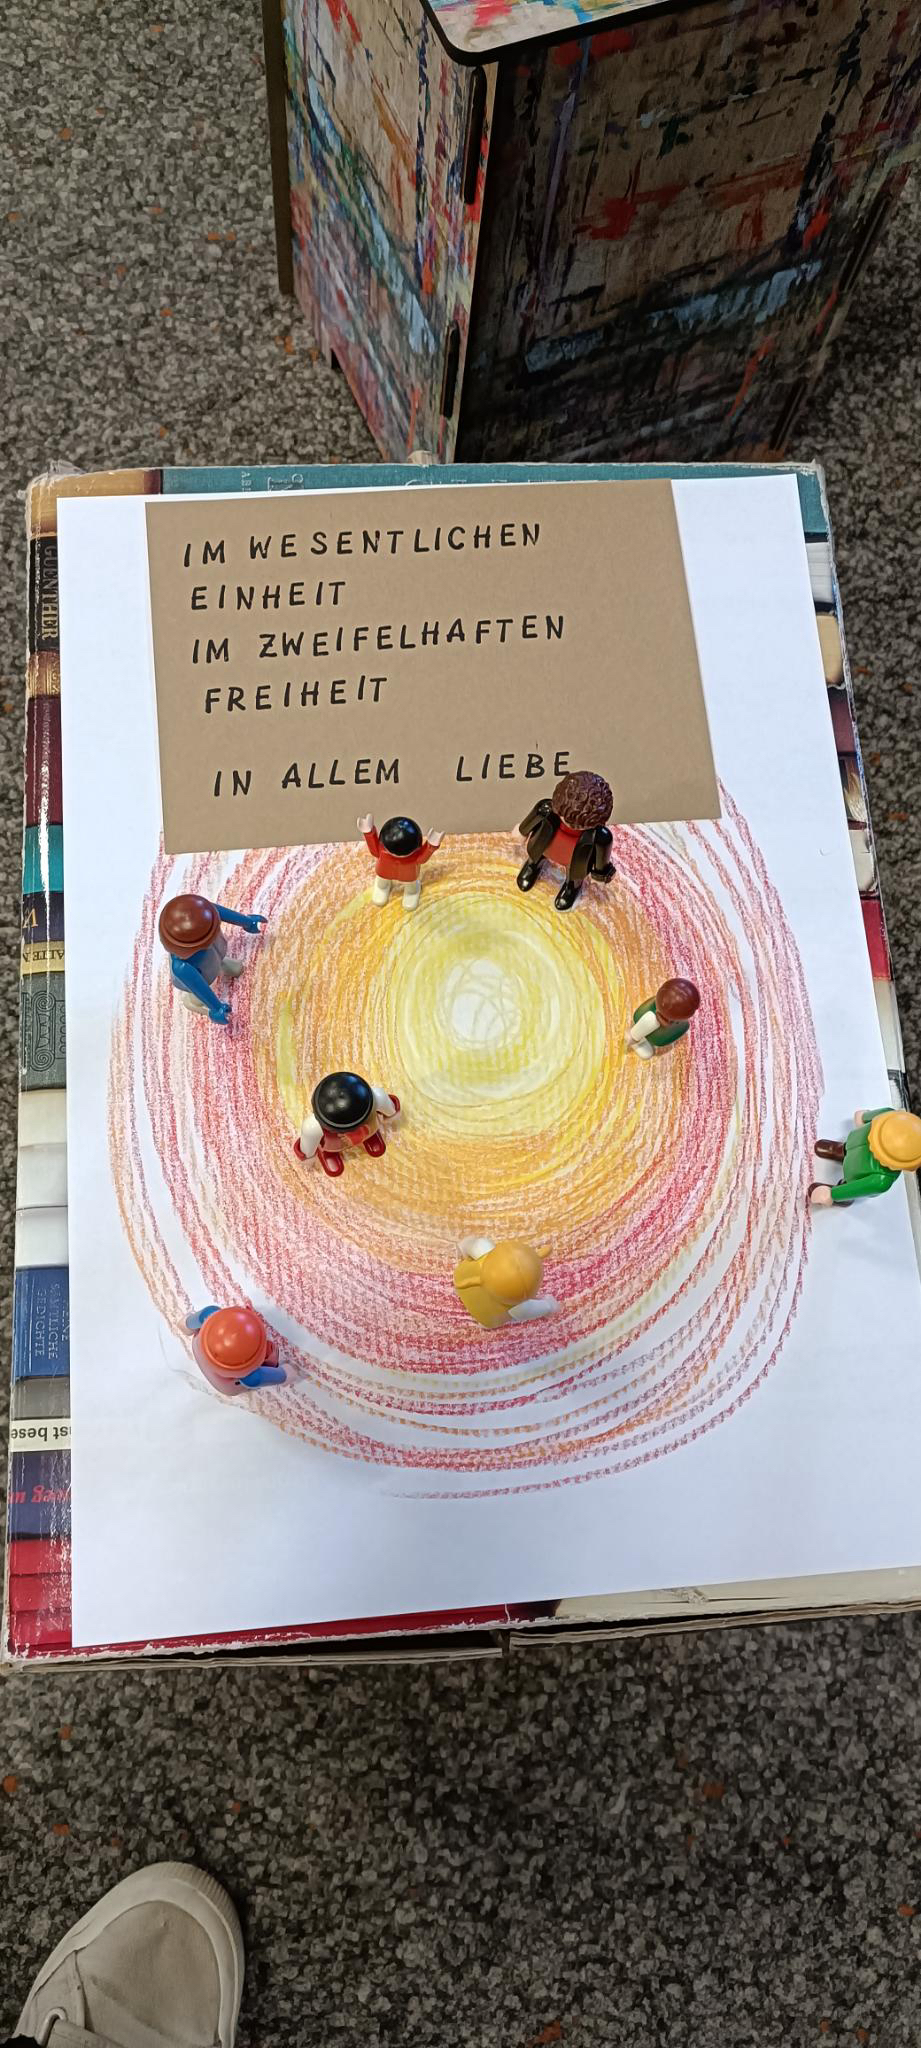 IM WESENTLICHEN
EINHEIT
IM ZWEIFELHAFTEN
FREIHEIT
IN ALLEM LIEBE
GUENTHER
SÄMTLICHE
GEDICHTE